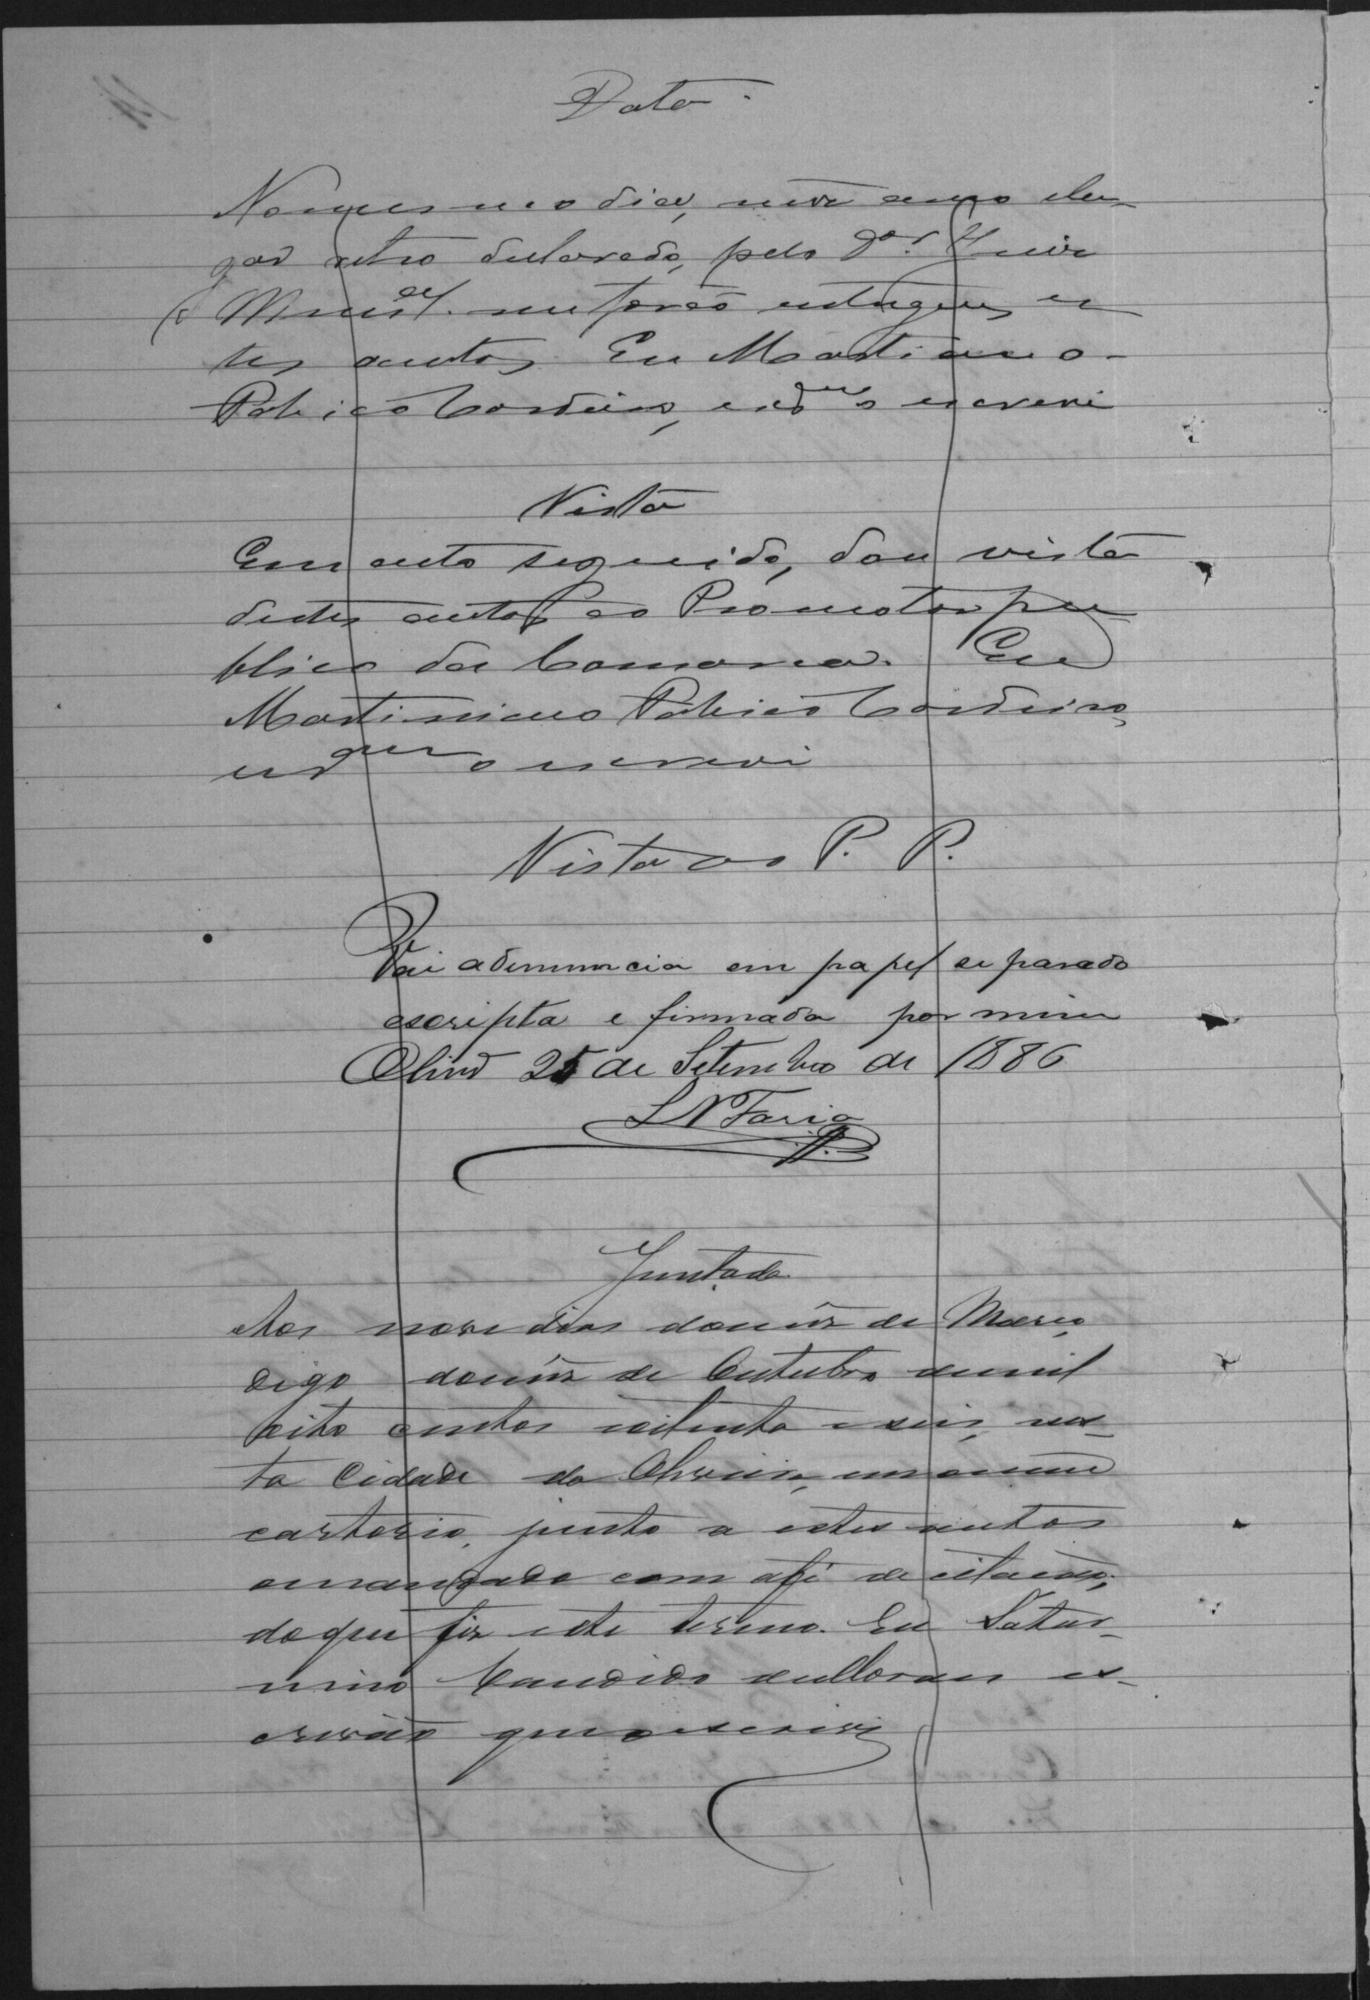 Data
No mesmo dia, mez anno e lu-
gar retro declarado, pelo Dor. Juiz
Munal. me forão entregues es-
tes autos. Eu Martiniano
Patricio Cordeiro, escram o escrevi
Vista
Em acto seguido, dou vista
destes autos ao Promotor pu
blico da Comarca. Eu
Martiniano Patricio Cordeiro,
o escrevi
Vista ao P. P.
Vai a denuncia em papel separado
escripta e firmada por mim
25 de Setembro de 1886
L N Faria
Juntada
Aos nove dias do mez de Março,
digo do mez de Outubro de mil
oito centos oitenta e seis, nes-
ta Cidade da Oliveira, em o meu
cartorio, junto a estes autos
o mandado com a fé de citação;
do que fiz este termo. Eu Satur-
nino Candido es-
crivão que o escrevi